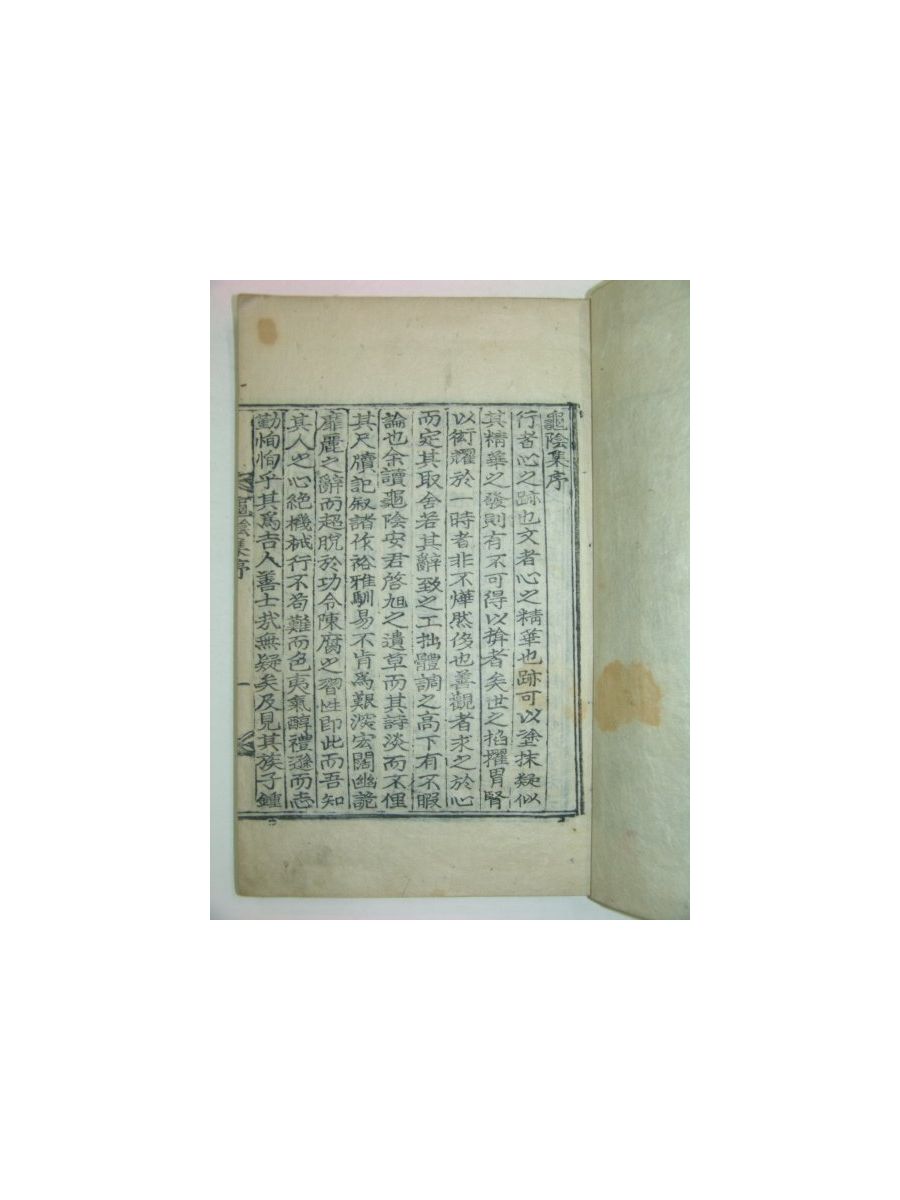 龜陰集序
行者心之跡也文者心之精華也跡可以塗抹疑似
其精華之發則有不可得以揜者矣世之掐擢胃腎
以衒耀於一時者非不燁然侈也善觀者求之於心
而定其取舍若其辭致之工拙體調之高下有不暇
論也余讀龜陰安君啓旭之遺草而其詩淡而不俚
其尺牘記敍諸作裕雅馴易不肯爲艱深宏闊幽詭
靡麗之辭而超脫於功令陳腐之習性卽此而吾知
其人之心絶機械行不苟難而色夷氣醇禮遜而志
勤恂恂乎其爲吉人善士哉無疑矣及見其族子鍾
龜陰集序
一